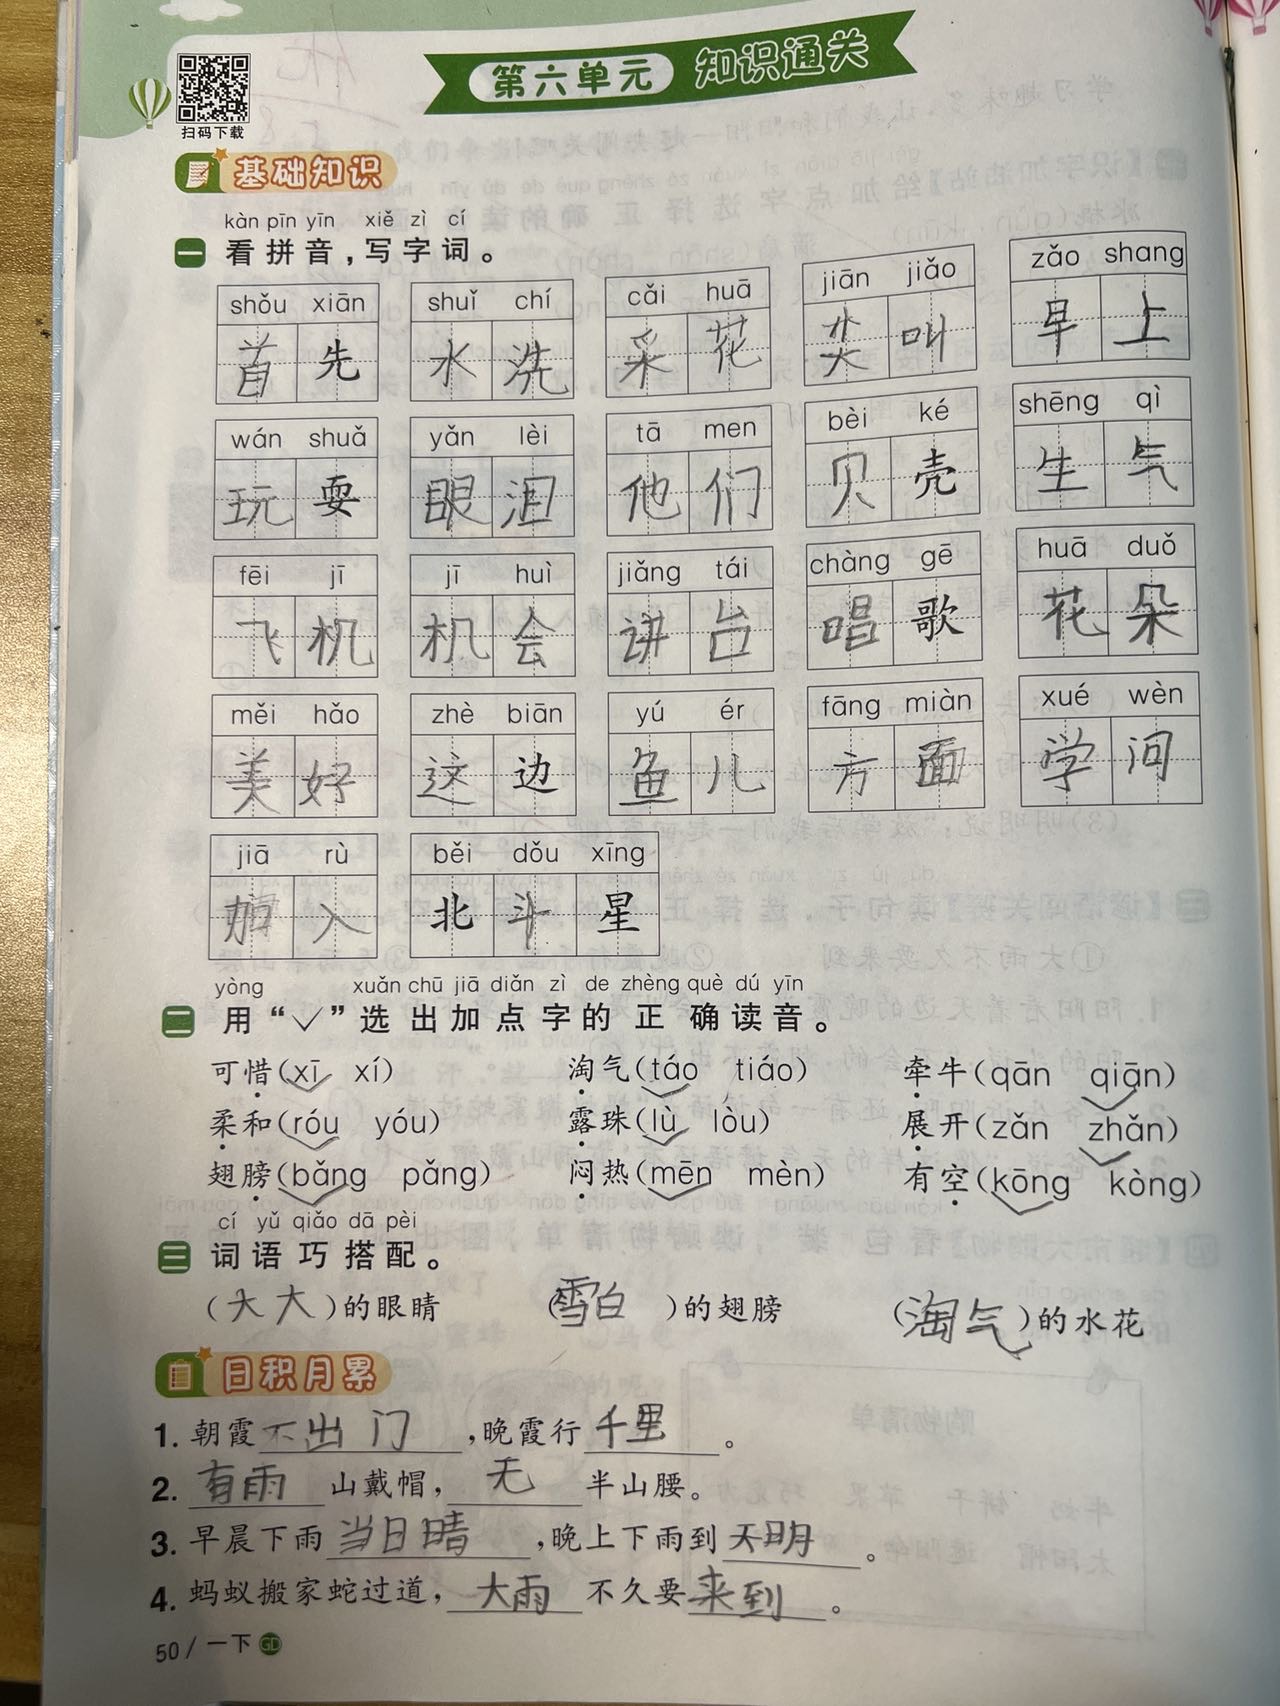 第六单元 知识通关
扫码下载
基础知识
kàn pīn yīn xiě zì cí
一 看拼音,写字词。
shǒu xiān shuǐ chí cǎi huā jiān jiǎo zǎo shang
首先 水洗 采花 尖叫 早上
wán shuǎ yǎn lèi tā men bèi ké shēng qì
玩耍 眼泪 他们 贝壳 生气
fēi jī jī huì jiǎng tái chàng gē huā duǒ
飞机 机会 讲台 唱歌 花朵
měi hǎo zhè biān yú ér fāng miàn xué wèn
美好 这边 鱼儿 方面 学问
jiā rù běi dǒu xīng
加入 北斗星
yòng xuǎn chū jiā diǎn zì de zhèng què dú yīn
二 用“✓”选出加点字的正确读音。
可惜(xī xí) 淘气(táo tiáo) 牵牛(qān qiān)
柔和(róu yóu) 露珠(lù lòu) 展开(zǎn zhǎn)
翅膀(bǎng pǎng) 闷热(mēn mèn) 有空(kōng kòng)
cí yǔ qiǎo dā pèi
三 词语巧搭配。
(大大)的眼睛 (雪白)的翅膀 (淘气)的水花
日积月累
1. 朝霞不出门,晚霞行千里。
2. 有雨山戴帽,无半山腰。
3. 早晨下雨当日晴,晚上下雨到天明。
4. 蚂蚁搬家蛇过道,大雨不久要来到。
50/一下 GD